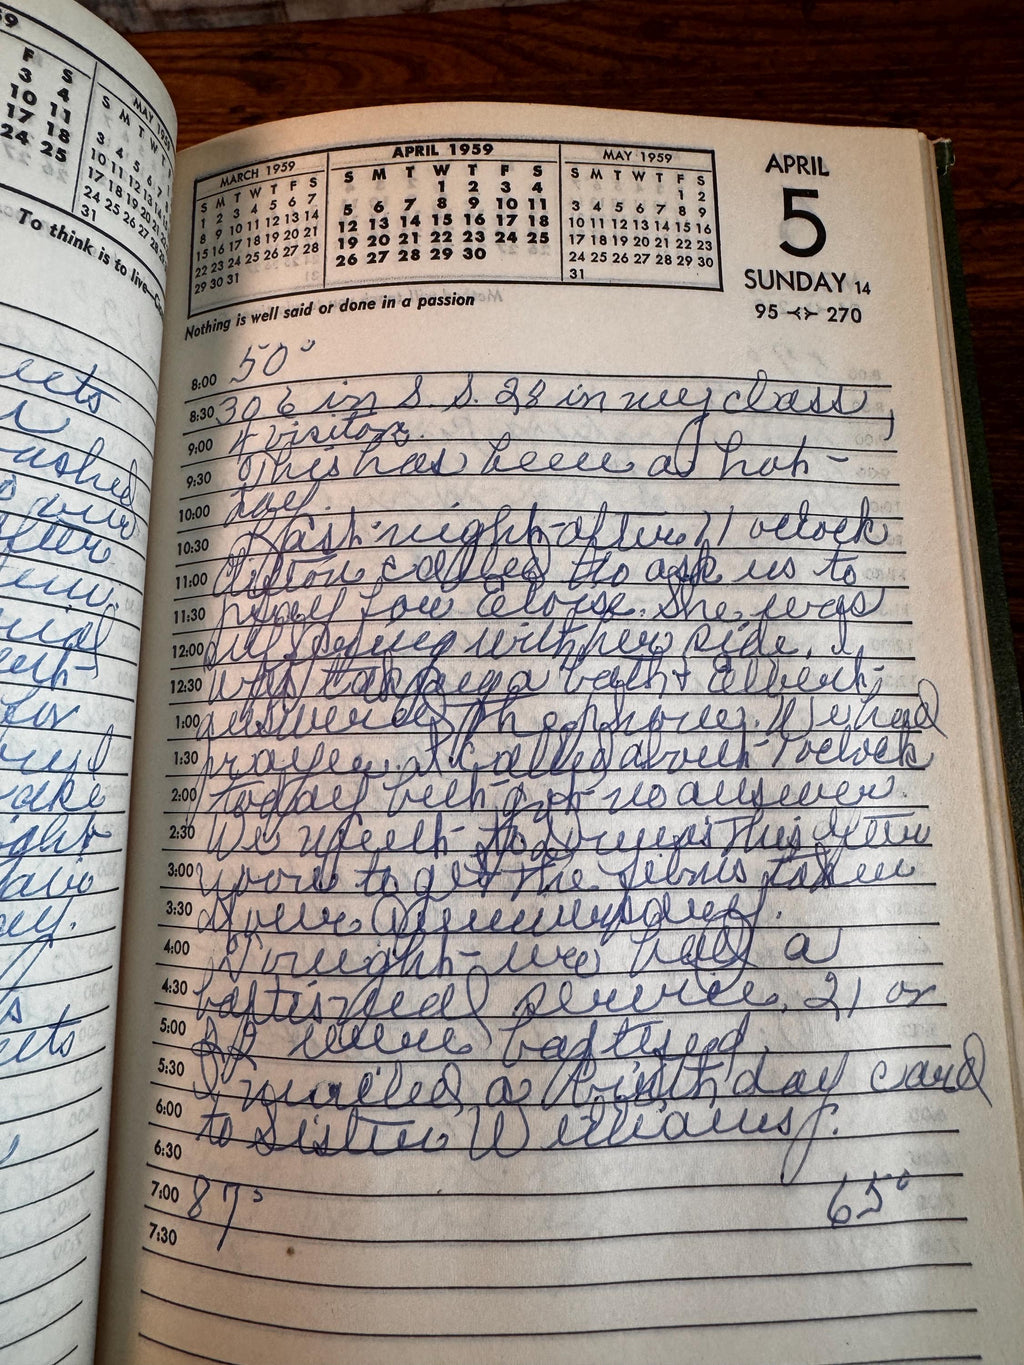 59
F S
3 4
10 11
17 18
24 25
MAY 1959
S M T W T
3 4 5 6 7
10 11 12 13 14
17 18 19 20 21
24 25 26 27 28
31
To think is to live—
eets
ashed
our
after
for
ake
ight
ay.
eets
MARCH 1959
S M T W T F S
1 2 3 4 5 6 7
8 9 10 11 12 13 14
15 16 17 18 19 20 21
22 23 24 25 26 27 28
29 30 31
APRIL 1959
S M T W T F S
1 2 3 4
5 6 7 8 9 10 11
12 13 14 15 16 17 18
19 20 21 22 23 24 25
26 27 28 29 30
MAY 1959
S M T W T F S
1 2
3 4 5 6 7 8 9
10 11 12 13 14 15 16
17 18 19 20 21 22 23
24 25 26 27 28 29 30
31
APRIL
5
SUNDAY 14
95 270
Nothing is well said or done in a passion
8:00 50°
8:30 306 in S. S. 28 in my class,
9:00 4 visitors.
9:30 This has been a hot
10:00 day.
10:30 Last night after 11 oclock
11:00 Clifton called to ask us to
11:30 pray for Eloise. She was
12:00 suffering with her side. I
12:30 was taking a bath & Elbert
1:00 answered the phone. We had
1:30 prayer. I called about 1 oclock
2:00 today but got no answer.
2:30 We went to this after
3:00 noon to get the films taken
3:30 over
4:00 Tonight we had a
4:30 baptismal service. 21 or
5:00 22 were baptised.
5:30 I mailed a birthday card
6:00 to Sister Williams.
6:30
7:00 87° 65°
7:30